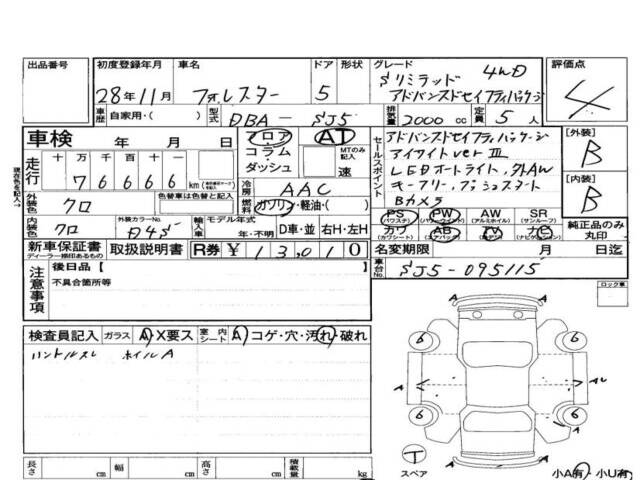 出品番号
初度登録年月 28年11月
車名 フォレスター
ドア 5
形状
グレード Sリミテッド 4WD
アドバンスドセイフティパッケージ
評価点 4
車歴 自家用・( )
型式 DBA-SJ5
排気量 2000cc
定員 5人
車検 年 月 日
フロア AT
コラム・ MTのみ記入
ダッシュ 速
セールスポイント
アドバンスドセイフティパッケージ
アイサイトver Ⅲ
LEDオートライト, 外AW
キーフリー, プッシュスタート
Bカメラ
[外装] B
[内装] B
現在色を記入→
走行 十 万 千 百 十
7 6 6 6 6 km
冷房 AAC
外装色 クロ
色替車は色替と記入
燃料 ガソリン・軽油・( )
PS (パワステ) PW (パワーウィンド) AW (アルミホイル) SR (サンルーフ)
カワ (カワシート) AB (エアバック) TV ナビ (ナビゲーション)
純正品のみ丸印
内装色 クロ
外装カラーNo. D4S
輸入車 モデル年式 年・不明
D車・並 右H・左H
新車保証書 ディーラー捺印あるもの
取扱説明書
R券 ¥ 13,010
名変期限 月 日迄
車台No. SJ5-095115
注意事項
後日品 [ ]
不具合箇所等
ロック車
検査員記入
ガラス A・X要ス
室内シート A コゲ・穴・汚れ・破れ
ハンドルスレ ホイルA
A
A
6 6
A A
A AU
6 6
A
T
スペア
小A有・小U有
長さ cm 幅 cm 高さ cm 積載量 kg